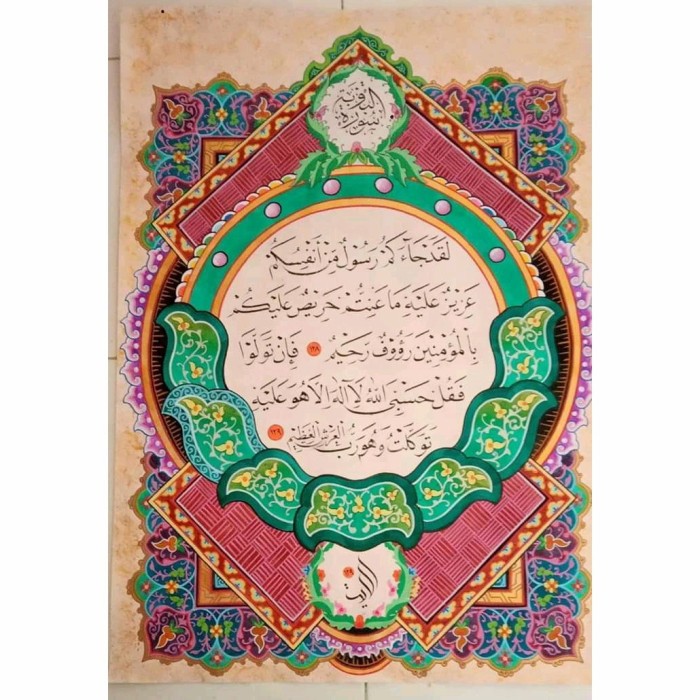 سورة التوبة
لقد جاءكم رسول من أنفسكم
عزيز عليه ما عنتم حريص عليكم
بالمؤمنين رؤوف رحيم ١٢٨ فإن تولوا
فقل حسبي الله لا آله إلا هو عليه
توكلت وهو رب العرش العظيم ١٢٩